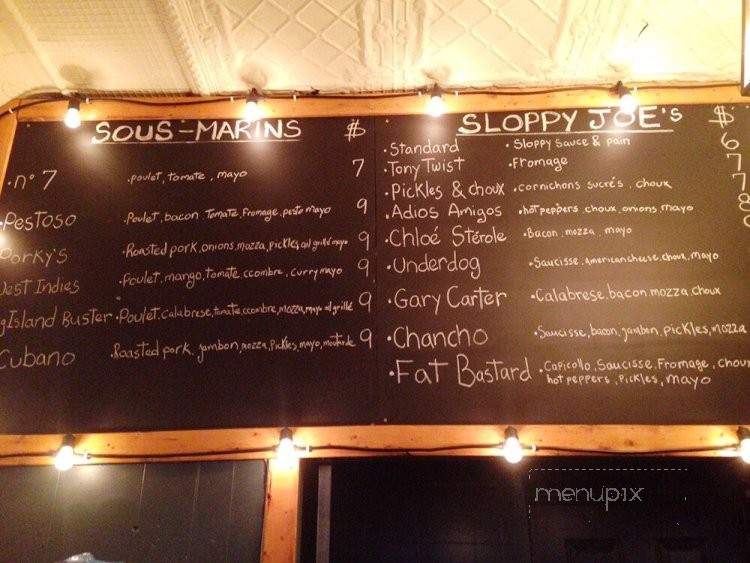 SOUS-MARINS $
• n° 7 • poulet, tomate, mayo 7
Pestoso Poulet, bacon, Tomate, fromage, pesto mayo 9
Porky's Roasted pork, onions, mozza, pickles, ail grillé mayo 9
West Indies Poulet, mango, tomate, ccombre, curry mayo 9
Island Buster • Poulet, calabrese, tomate, ccombre, mozza, mayo ail grillé 9
Cubano • Roasted pork, jambon, mozza, Pickles, mayo, moutarde 9
SLOPPY JOE's $
• Standard • Sloppy sauce & pain 6
• Tony Twist • Fromage 7
• Pickles & choux • cornichons sucrés, choux 7
• Adios Amigos • hot peppers, choux, onions, mayo 8
• Chloé Stérole • Bacon, mozza, mayo
• Underdog • Saucisse, american cheese, choux, mayo
• Gary Carter • Calabrese, bacon, mozza, choux
• Chancho • Saucisse, bacon, jambon, pickles, mozza
• Fat Bastard • Capicollo, Saucisse, Fromage, choux
hot peppers, pickles, mayo
menupix